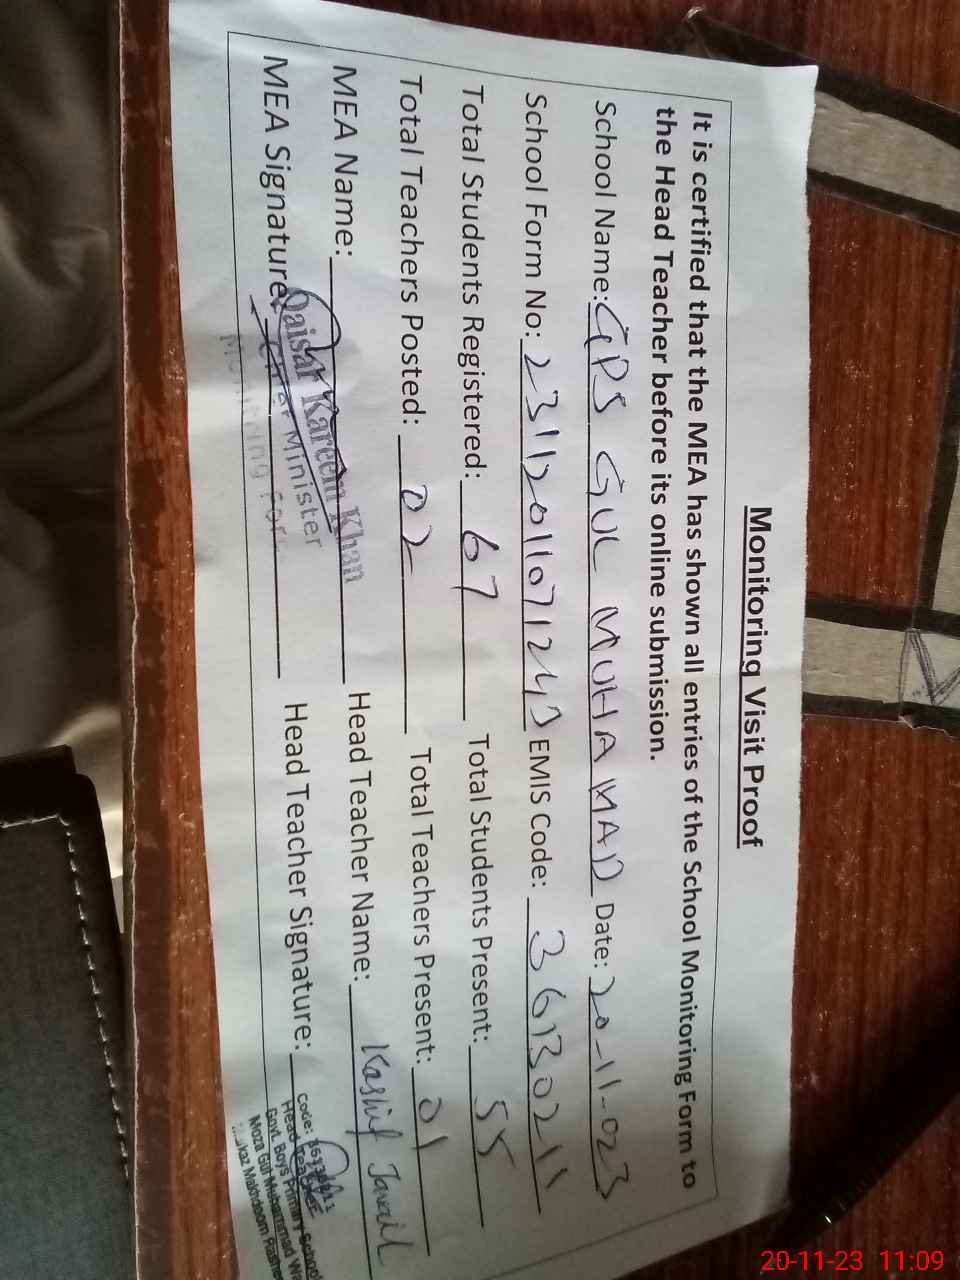 Monitoring Visit Proof
It is certified that the MEA has shown all entries of the School Monitoring Form to
the Head Teacher before its online submission.
School Name: GPS GUL MUHAMMAD Date: 20-11-023
School Form No: EMIS Code: 36130211
Total Students Registered: 67 Total Students Present: 55
Total Teachers Posted: 02 Total Teachers Present: 01
MEA Name: Head Teacher Name: Kashif Javaid
Qaisar Kareem Khan
MEA Signature: Head Teacher Signature:
Chief Minister
Monitoring Force
Code: 36130211
Head Teacher
Govt. Boys Primary School
Moza Gul Muhammad
Markaz Makhdoom Rasheed
20-11-23 11:09